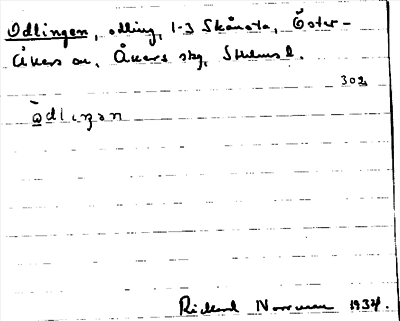 Odlingen, odling, 1-3 Skånsta, Öster-
Åkers sn, Åkers skg, Sthlms l.
302
ọ̄dlıŋən
Rickard Norrman 1934.